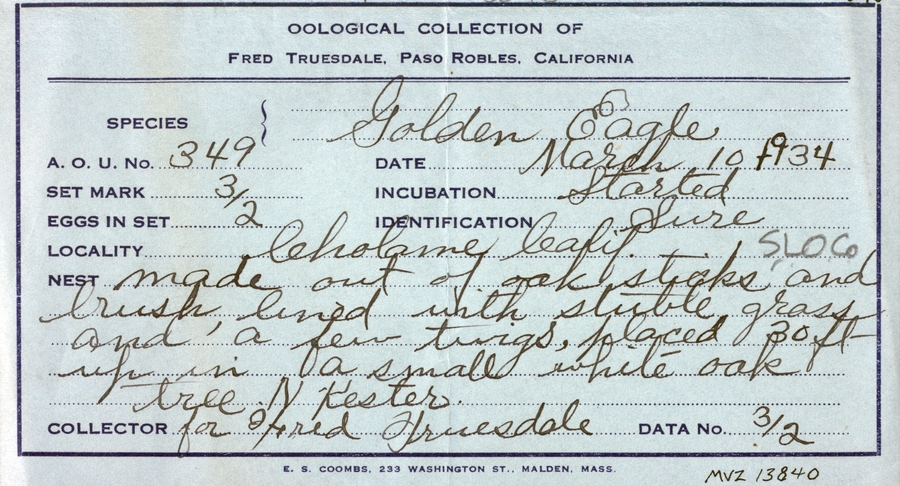 OOLOGICAL COLLECTION OF
FRED TRUESDALE, PASO ROBLES, CALIFORNIA
SPECIES Golden Eagle
A. O. U. No. 349 DATE March 10 1934
SET MARK 3/2 INCUBATION Started
EGGS IN SET 2 IDENTIFICATION Sure
LOCALITY Cholame Calif. SLO Co
NEST made out of oak sticks and
brush lined with stuble grass
and a few twigs, placed 30 ft
up in a small white oak
tree. N Kester.
COLLECTOR for Fred Truesdale DATA No. 3/2
E. S. COOMBS, 233 WASHINGTON ST., MALDEN, MASS.
MVZ 13840